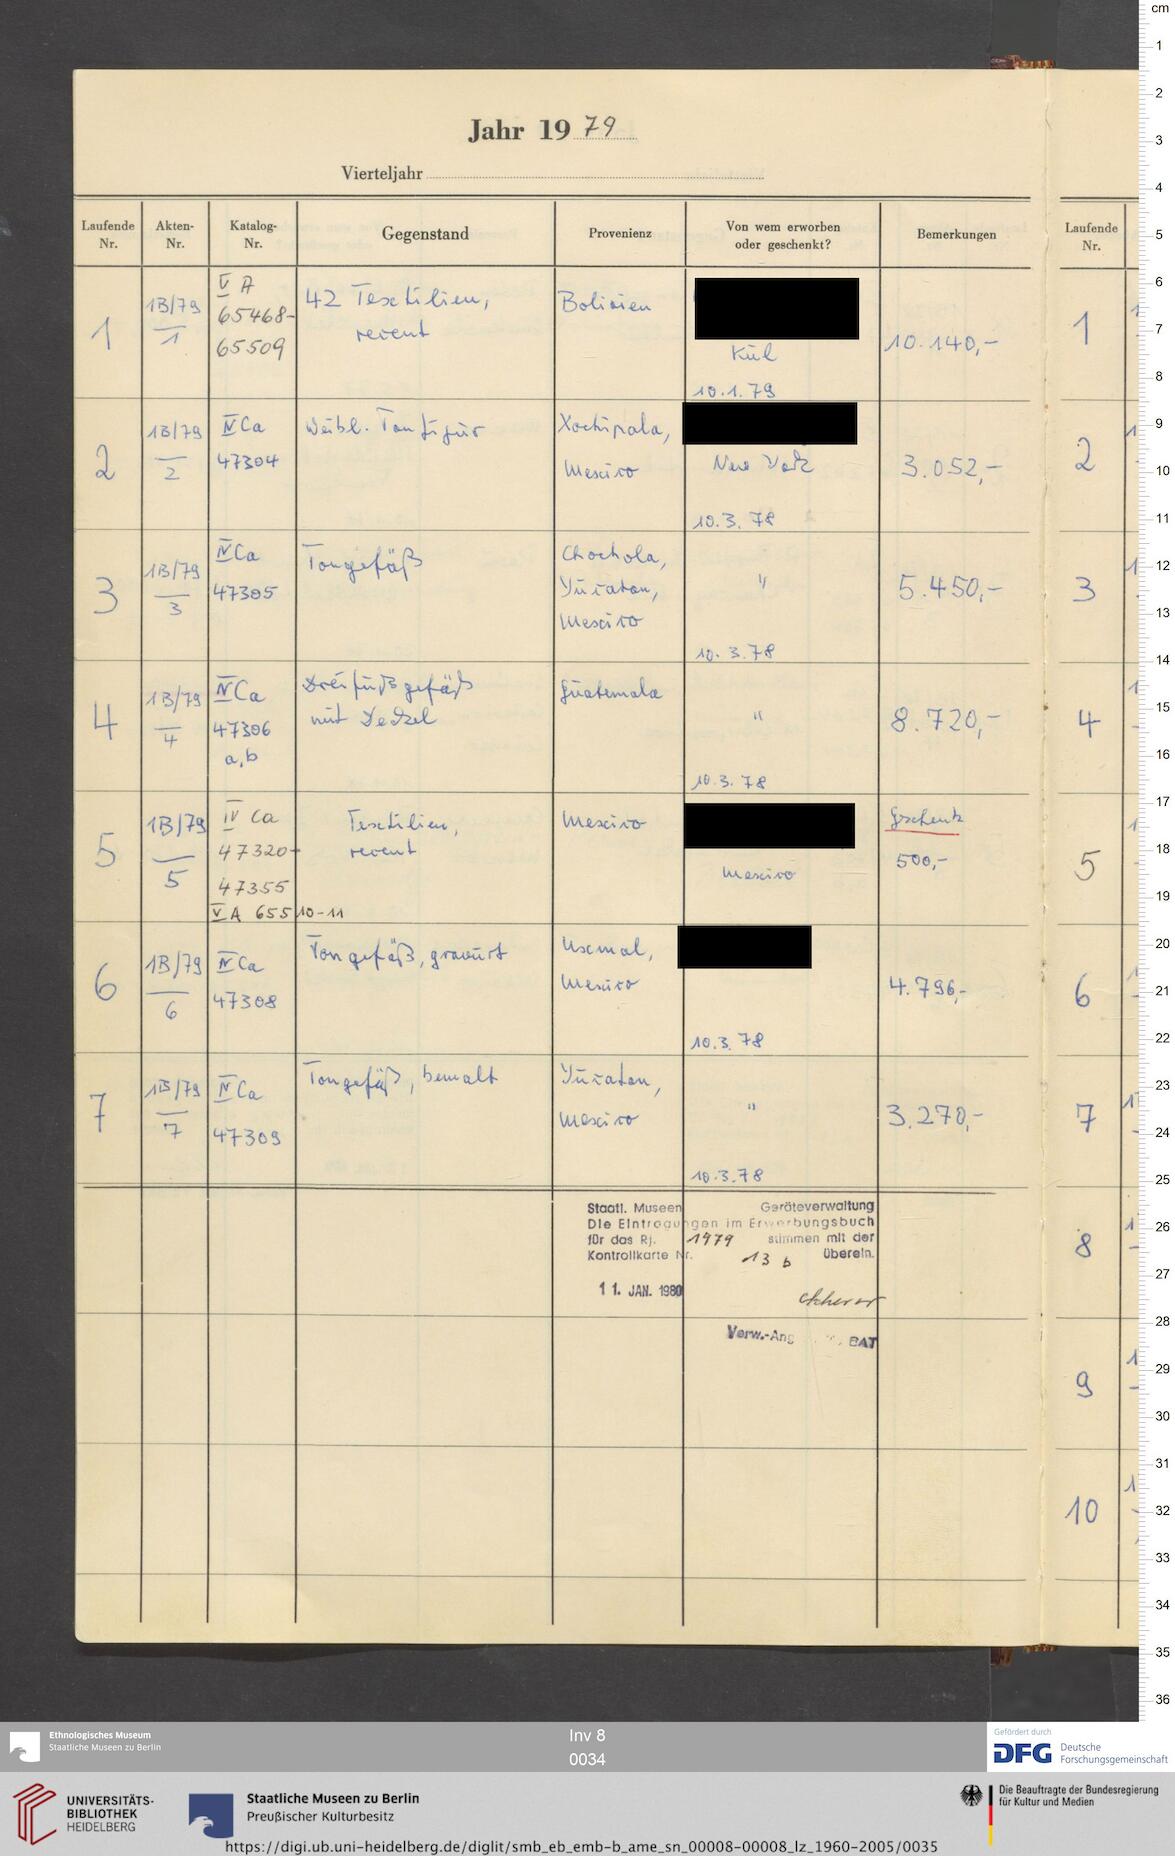 Jahr 1979
Vierteljahr
Laufende Nr.
Akten-Nr.
Katalog-Nr.
Gegenstand
Provenienz
Von wem erworben oder geschenkt?
Bemerkungen
Laufende Nr.
1
1B/79
1
V A
65468-
65509
42 Textilien,
rezent
Bolivien
Kiel
10.1.79
10.140,-
1
2
1B/79
2
IV Ca
47304
Weibl. Tonfigur
Xochipala,
Mexico
New York
10.3.78
3.052,-
2
3
1B/79
3
IV Ca
47305
Tongefäß
Chochola,
Yucatan,
Mexico
"
10.3.78
5.450,-
3
4
1B/79
4
IV Ca
47306
a,b
Dreifußgefäß
mit Deckel
Guatemala
"
10.3.78
8.720,-
4
5
1B/79
5
IV Ca
47320-
47355
V A 65510-11
Textilien,
rezent
Mexico
Mexico
Geschenk
500,-
5
6
1B/79
6
IV Ca
47308
Tongefäß, graviert
Uxmal,
Mexico
10.3.78
4.796,-
6
7
1B/79
7
IV Ca
47309
Tongefäß, bemalt
Yucatan,
Mexico
"
10.3.78
3.270,-
7
Staatl. Museen Geräteverwaltung
Die Eintragungen im Erwerbungsbuch
für das Rj. 1979 stimmen mit der
Kontrollkarte Nr. 13 b überein.
11. JAN. 1980
Verw.-Ang BAT
8
9
10
cm
1
2
3
4
5
6
7
8
9
10
11
12
13
14
15
16
17
18
19
20
21
22
23
24
25
26
27
28
29
30
31
32
33
34
35
36
Ethnologisches Museum
Staatliche Museen zu Berlin
Inv 8
0034
Gefördert durch
DFG Deutsche
Forschungsgemeinschaft
UNIVERSITÄTS-
BIBLIOTHEK
HEIDELBERG
Staatliche Museen zu Berlin
Preußischer Kulturbesitz
Die Beauftragte der Bundesregierung
für Kultur und Medien
https://digi.ub.uni-heidelberg.de/diglit/smb_eb_emb-b_ame_sn_00008-00008_lz_1960-2005/0035